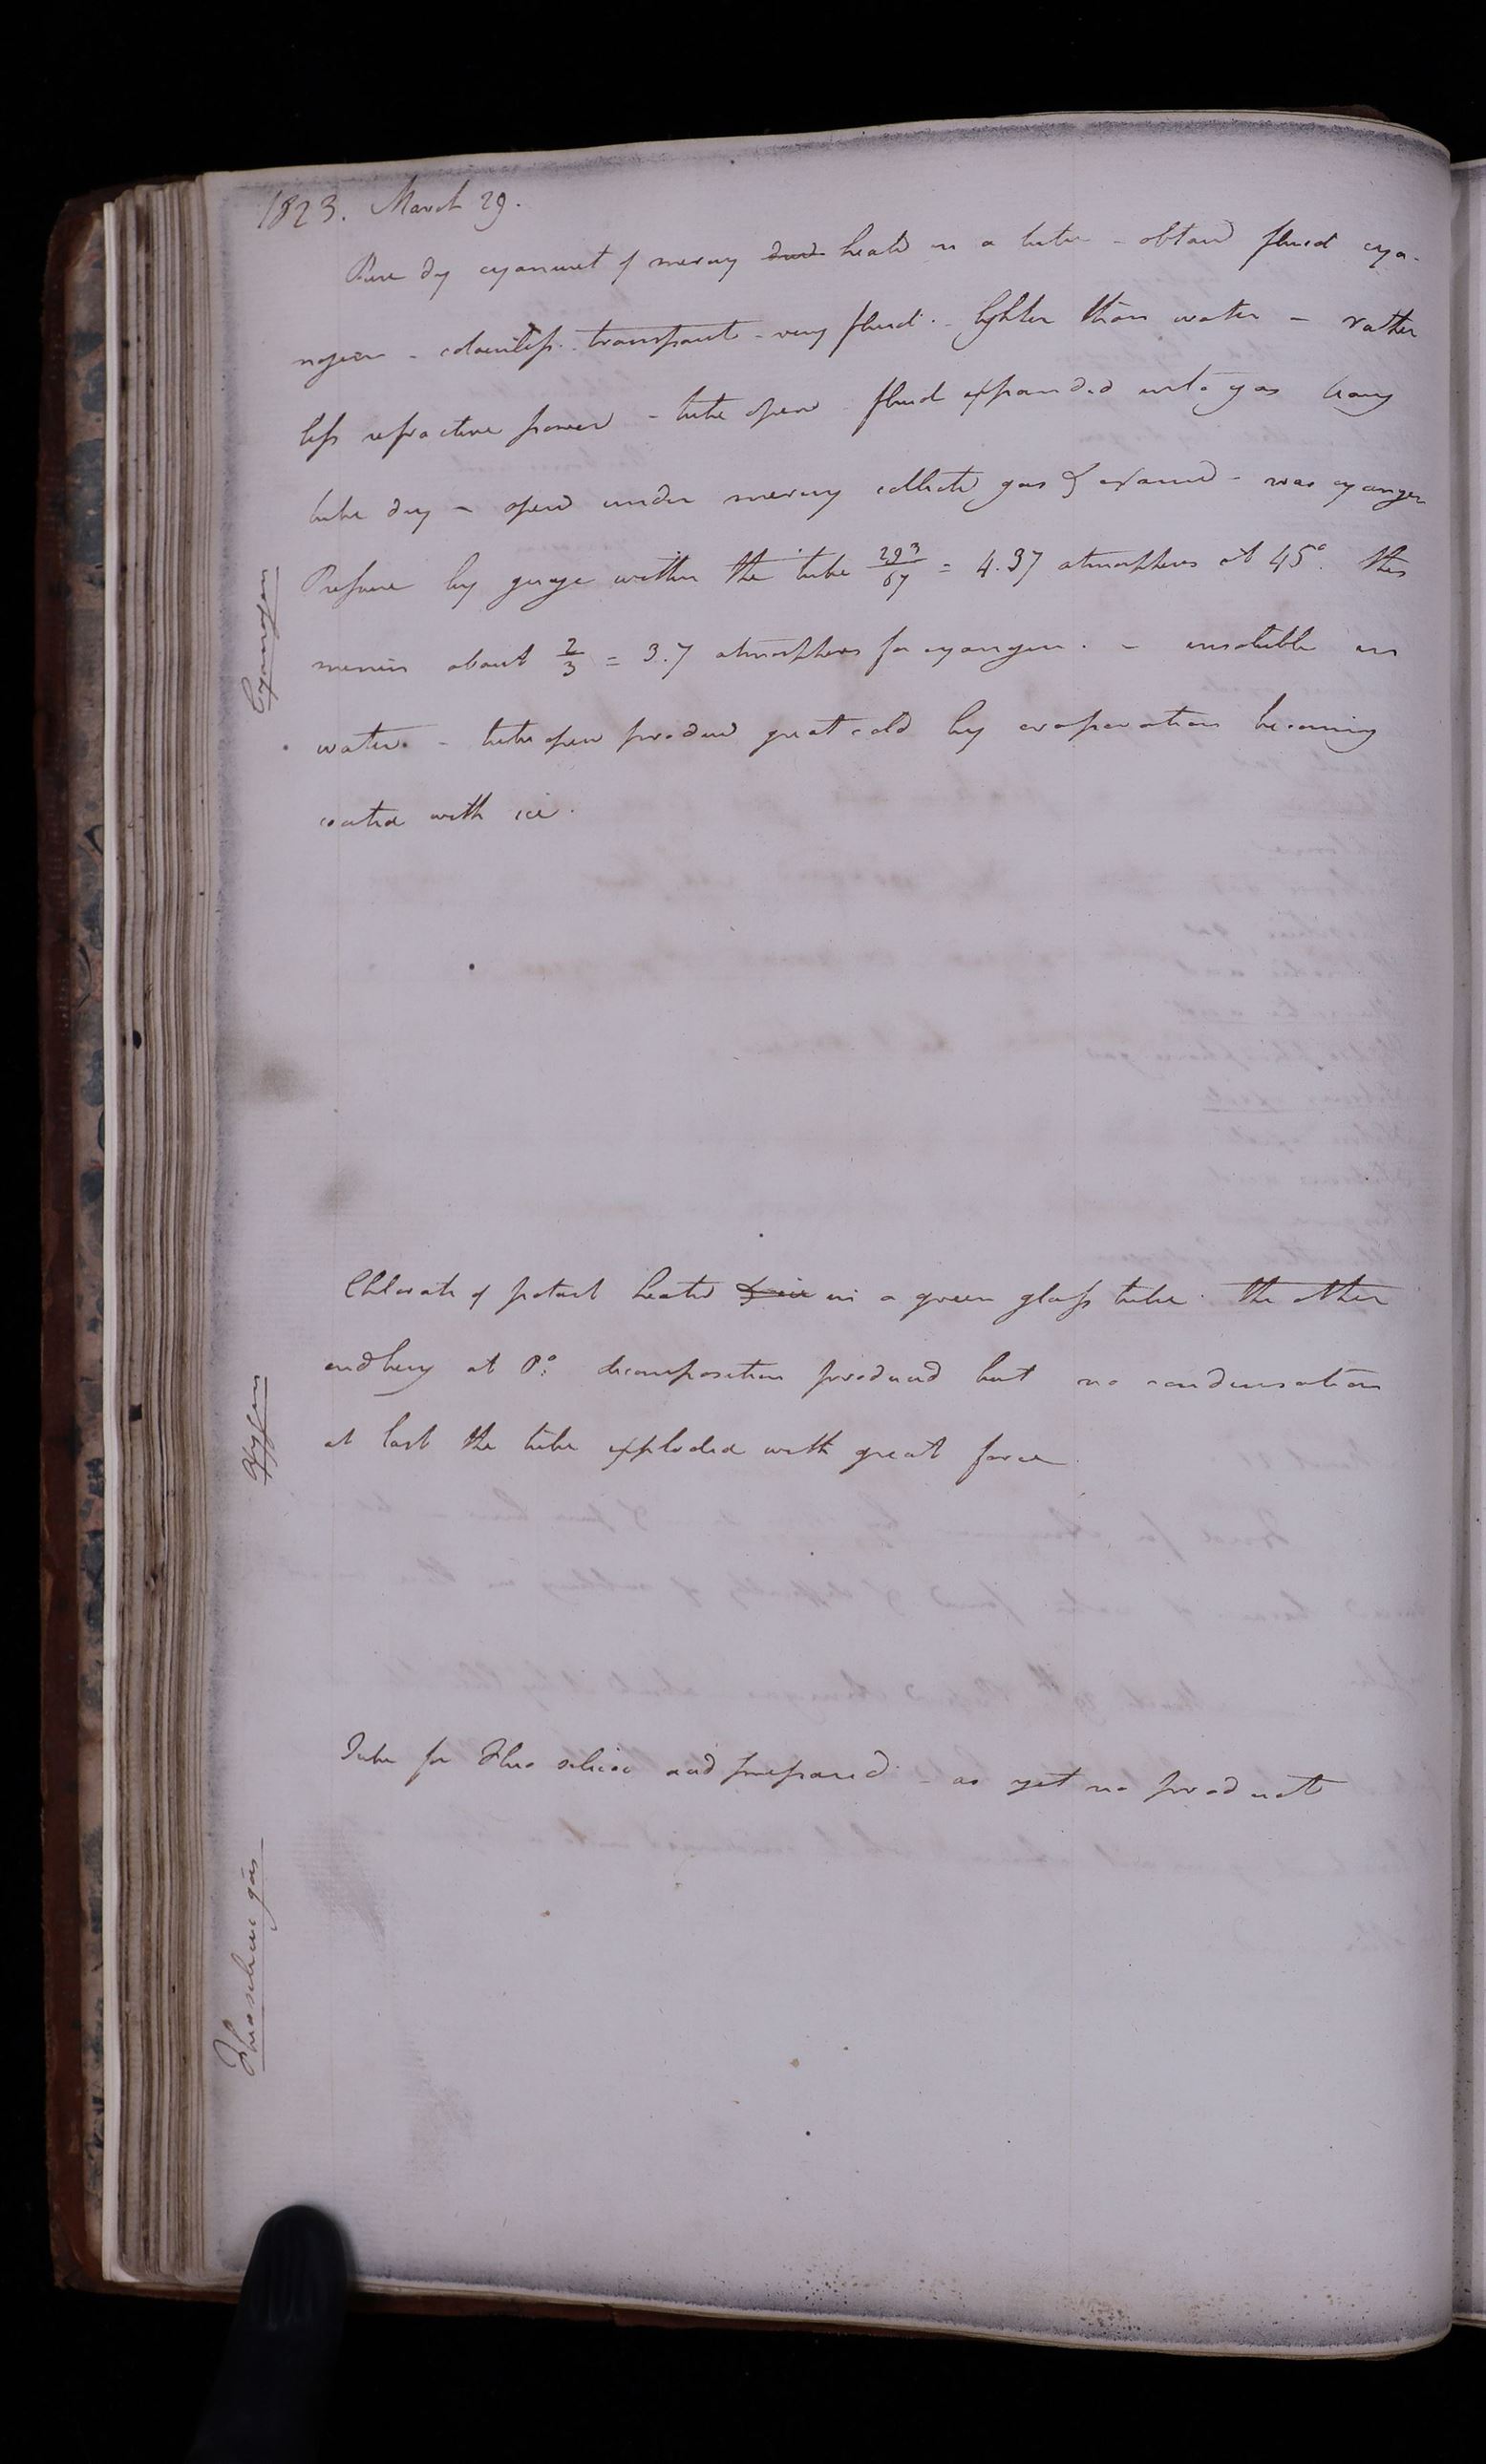 1823. March 29.
Pure dry cyanuret of mercury dried heated in a tube - obtaind fluid cya-
nogen - colourless - transparent - very fluid - lighter than water - rather
less refractive power - tube opend fluid expanded into gas leaving
tube dry - opend under mercury collected gas & examind - was cyanogen
Cyanogen
Pressure by guage within the tube 293/67 = 4.37 atmospheres at 45°. this
minus about 2/3 = 3.7 atmospheres for cyanogen. - insoluble in
water. - tube open producd great cold by evaporation becoming
coated with ice.
Chlorate of potash heated in a green glass tube. the other
end being at 0°: decomposition produced but no condensation
Oxygen
at last the tube exploded with great force
Tube for Fluo silicic acid prepared - as yet no product
Fluosilicic gas